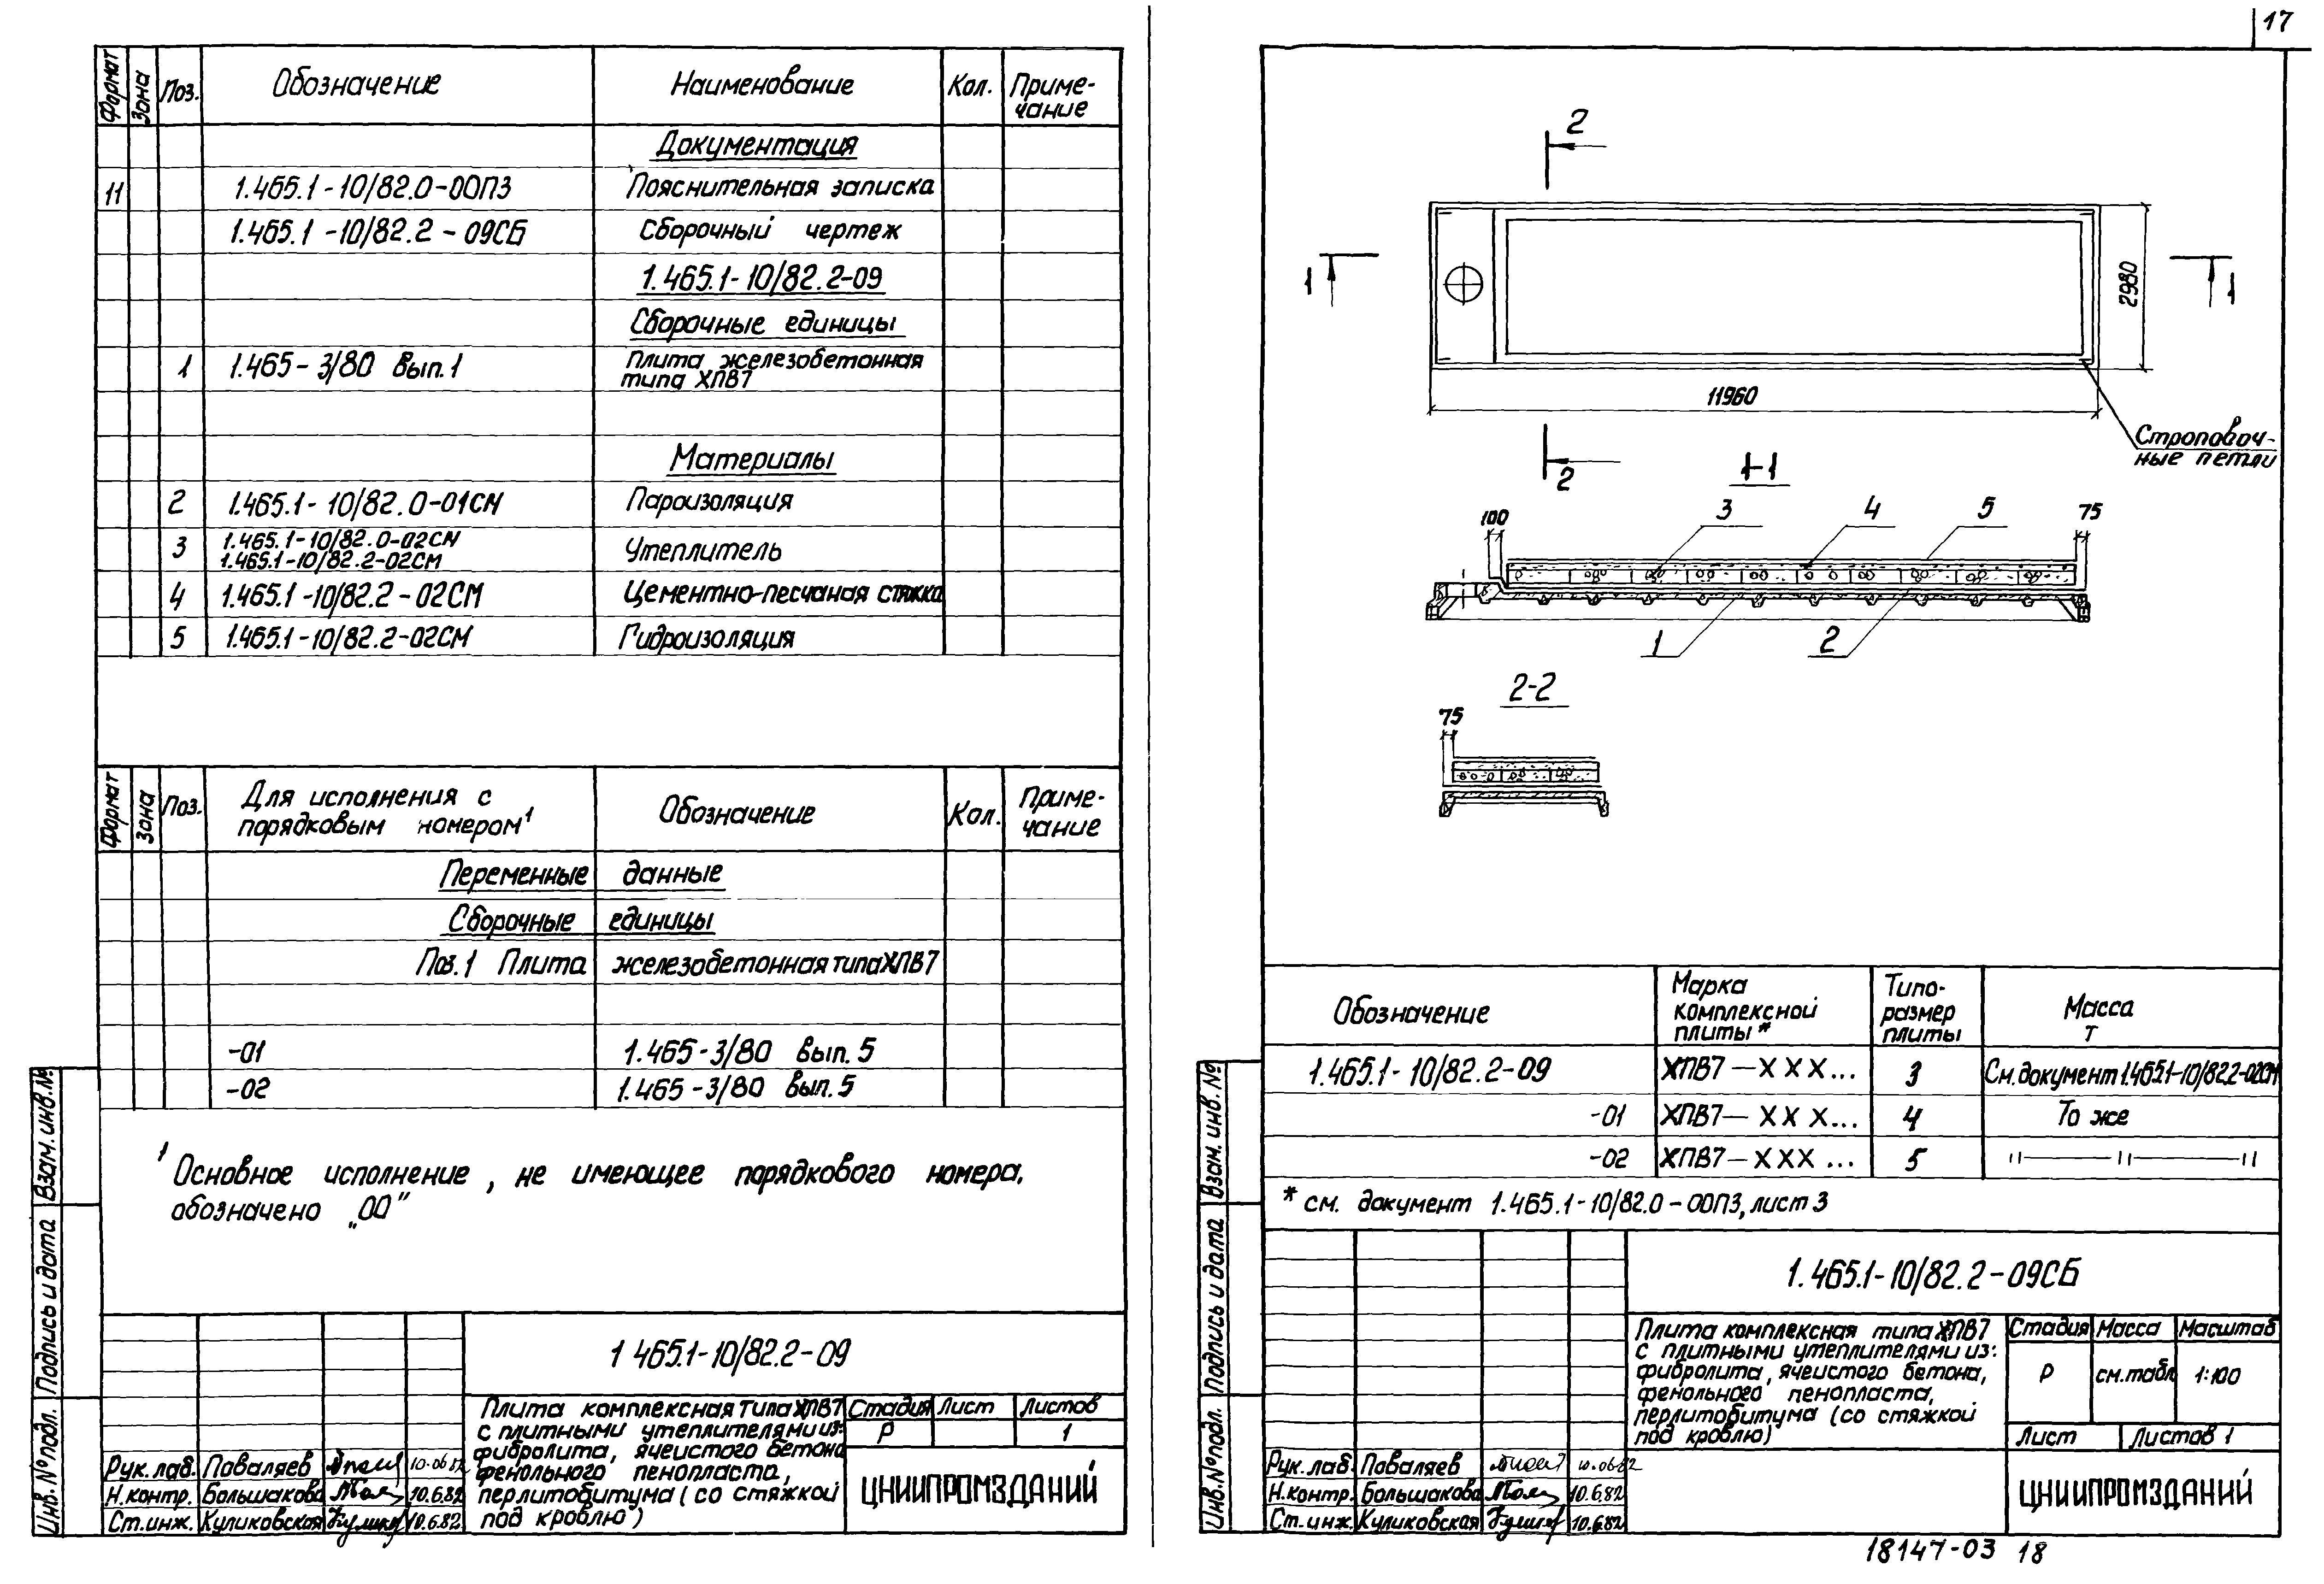 17
Формат Зона Поз. Обозначение Наименование Кол. Приме-
чание
Документация
11 1.465.1-10/82.0-00ПЗ Пояснительная записка
1.465.1-10/82.2-09СБ Сборочный чертеж
1.465.1-10/82.2-09
Сборочные единицы
1 1.465-3/80 Вып.1 Плита железобетонная
типа ХПВ7
Материалы
2 1.465.1-10/82.0-01СМ Пароизоляция
3 1.465.1-10/82.0-02СМ Утеплитель
1.465.1-10/82.2-02СМ
4 1.465.1-10/82.2-02СМ Цементно-песчаная стяжка
5 1.465.1-10/82.2-02СМ Гидроизоляция
Формат Зона Поз. Для исполнения с
порядковым номером¹ Обозначение Кол. Приме-
чание
Переменные данные
Сборочные единицы
Поз.1 Плита железобетонная типа ХПВ7
-01 1.465-3/80 вып. 5
-02 1.465-3/80 вып. 5
¹ Основное исполнение, не имеющее порядкового номера,
обозначено „00"
Взам. инв. №
Подпись и дата
Инв. № подл.
1 465.1-10/82.2-09
Плита комплексная типа ХПВ7
с плитными утеплителями из:
фибролита, ячеистого бетона
фенольного пенопласта,
перлитобитума (со стяжкой
под кровлю)
Стадия Лист Листов
Р 1
ЦНИИПРОМЗДАНИЙ
Рук. лаб. Поваляев 10.06.82
Н. контр. Большакова 10.6.82
Ст. инж. Куликовская 10.6.82
2
1 1
2980
11960
Строповоч-
ные петли
2
1-1
100 3 4 5 75
1 2
2-2
75
Обозначение Марка
комплексной
плиты* Типо-
размер
плиты Масса
т
1.465.1-10/82.2-09 ХПВ7-ХХХ... 3 См. документ 1.465.1-10/82.2-02СМ
-01 ХПВ7-ХХХ... 4 То же
-02 ХПВ7-ХХХ... 5 "—"—"
* см. документ 1.465.1-10/82.0-00ПЗ, лист 3
Взам. инв. №
Подпись и дата
Инв. № подл.
1.465.1-10/82.2-09СБ
Плита комплексная типа ХПВ7
с плитными утеплителями из:
фибролита, ячеистого бетона,
фенольного пенопласта,
перлитобитума (со стяжкой
под кровлю)
Стадия Масса Масштаб
Р см. табл 1:100
Лист Листов 1
ЦНИИПРОМЗДАНИЙ
Рук. лаб. Поваляев 10.06.82
Н. контр. Большакова 10.6.82
Ст. инж. Куликовская 10.6.82
18147-03 18